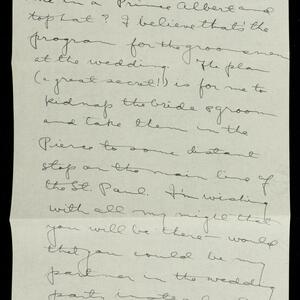 me in a Prince Albert and
top hat? I believe that's the
program for the groomsmen
at the wedding. The plan
(a great secret!) is for me to
kidnap the bride & groom
and take them in the
Pierce to some distant
stop on the main line of
the St. Paul. I'm wishing
with all my might that
you will be there - would
that you could be my
partner in the wedding
party instead